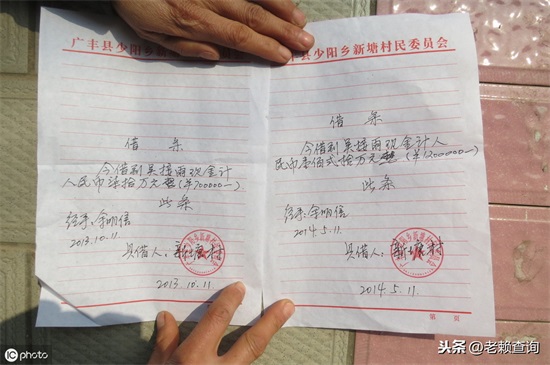 广丰县少阳乡新塘村民
借 条
今借到吴接雨现金计
人民币柒拾万元整(¥700000—)
此条
经手:余明信
2013.10.11.
具借人:新塘村
2013.10.11.
丰县少阳乡新塘村民委员会
借 条
今借到吴接雨现金计人
民币壹佰弍拾万元整(¥1200000—)
此条
经手:余明信
2014.5.11.
具借人:新塘村
2014.5.11.
第 页
iC photo
头条@老赖查询